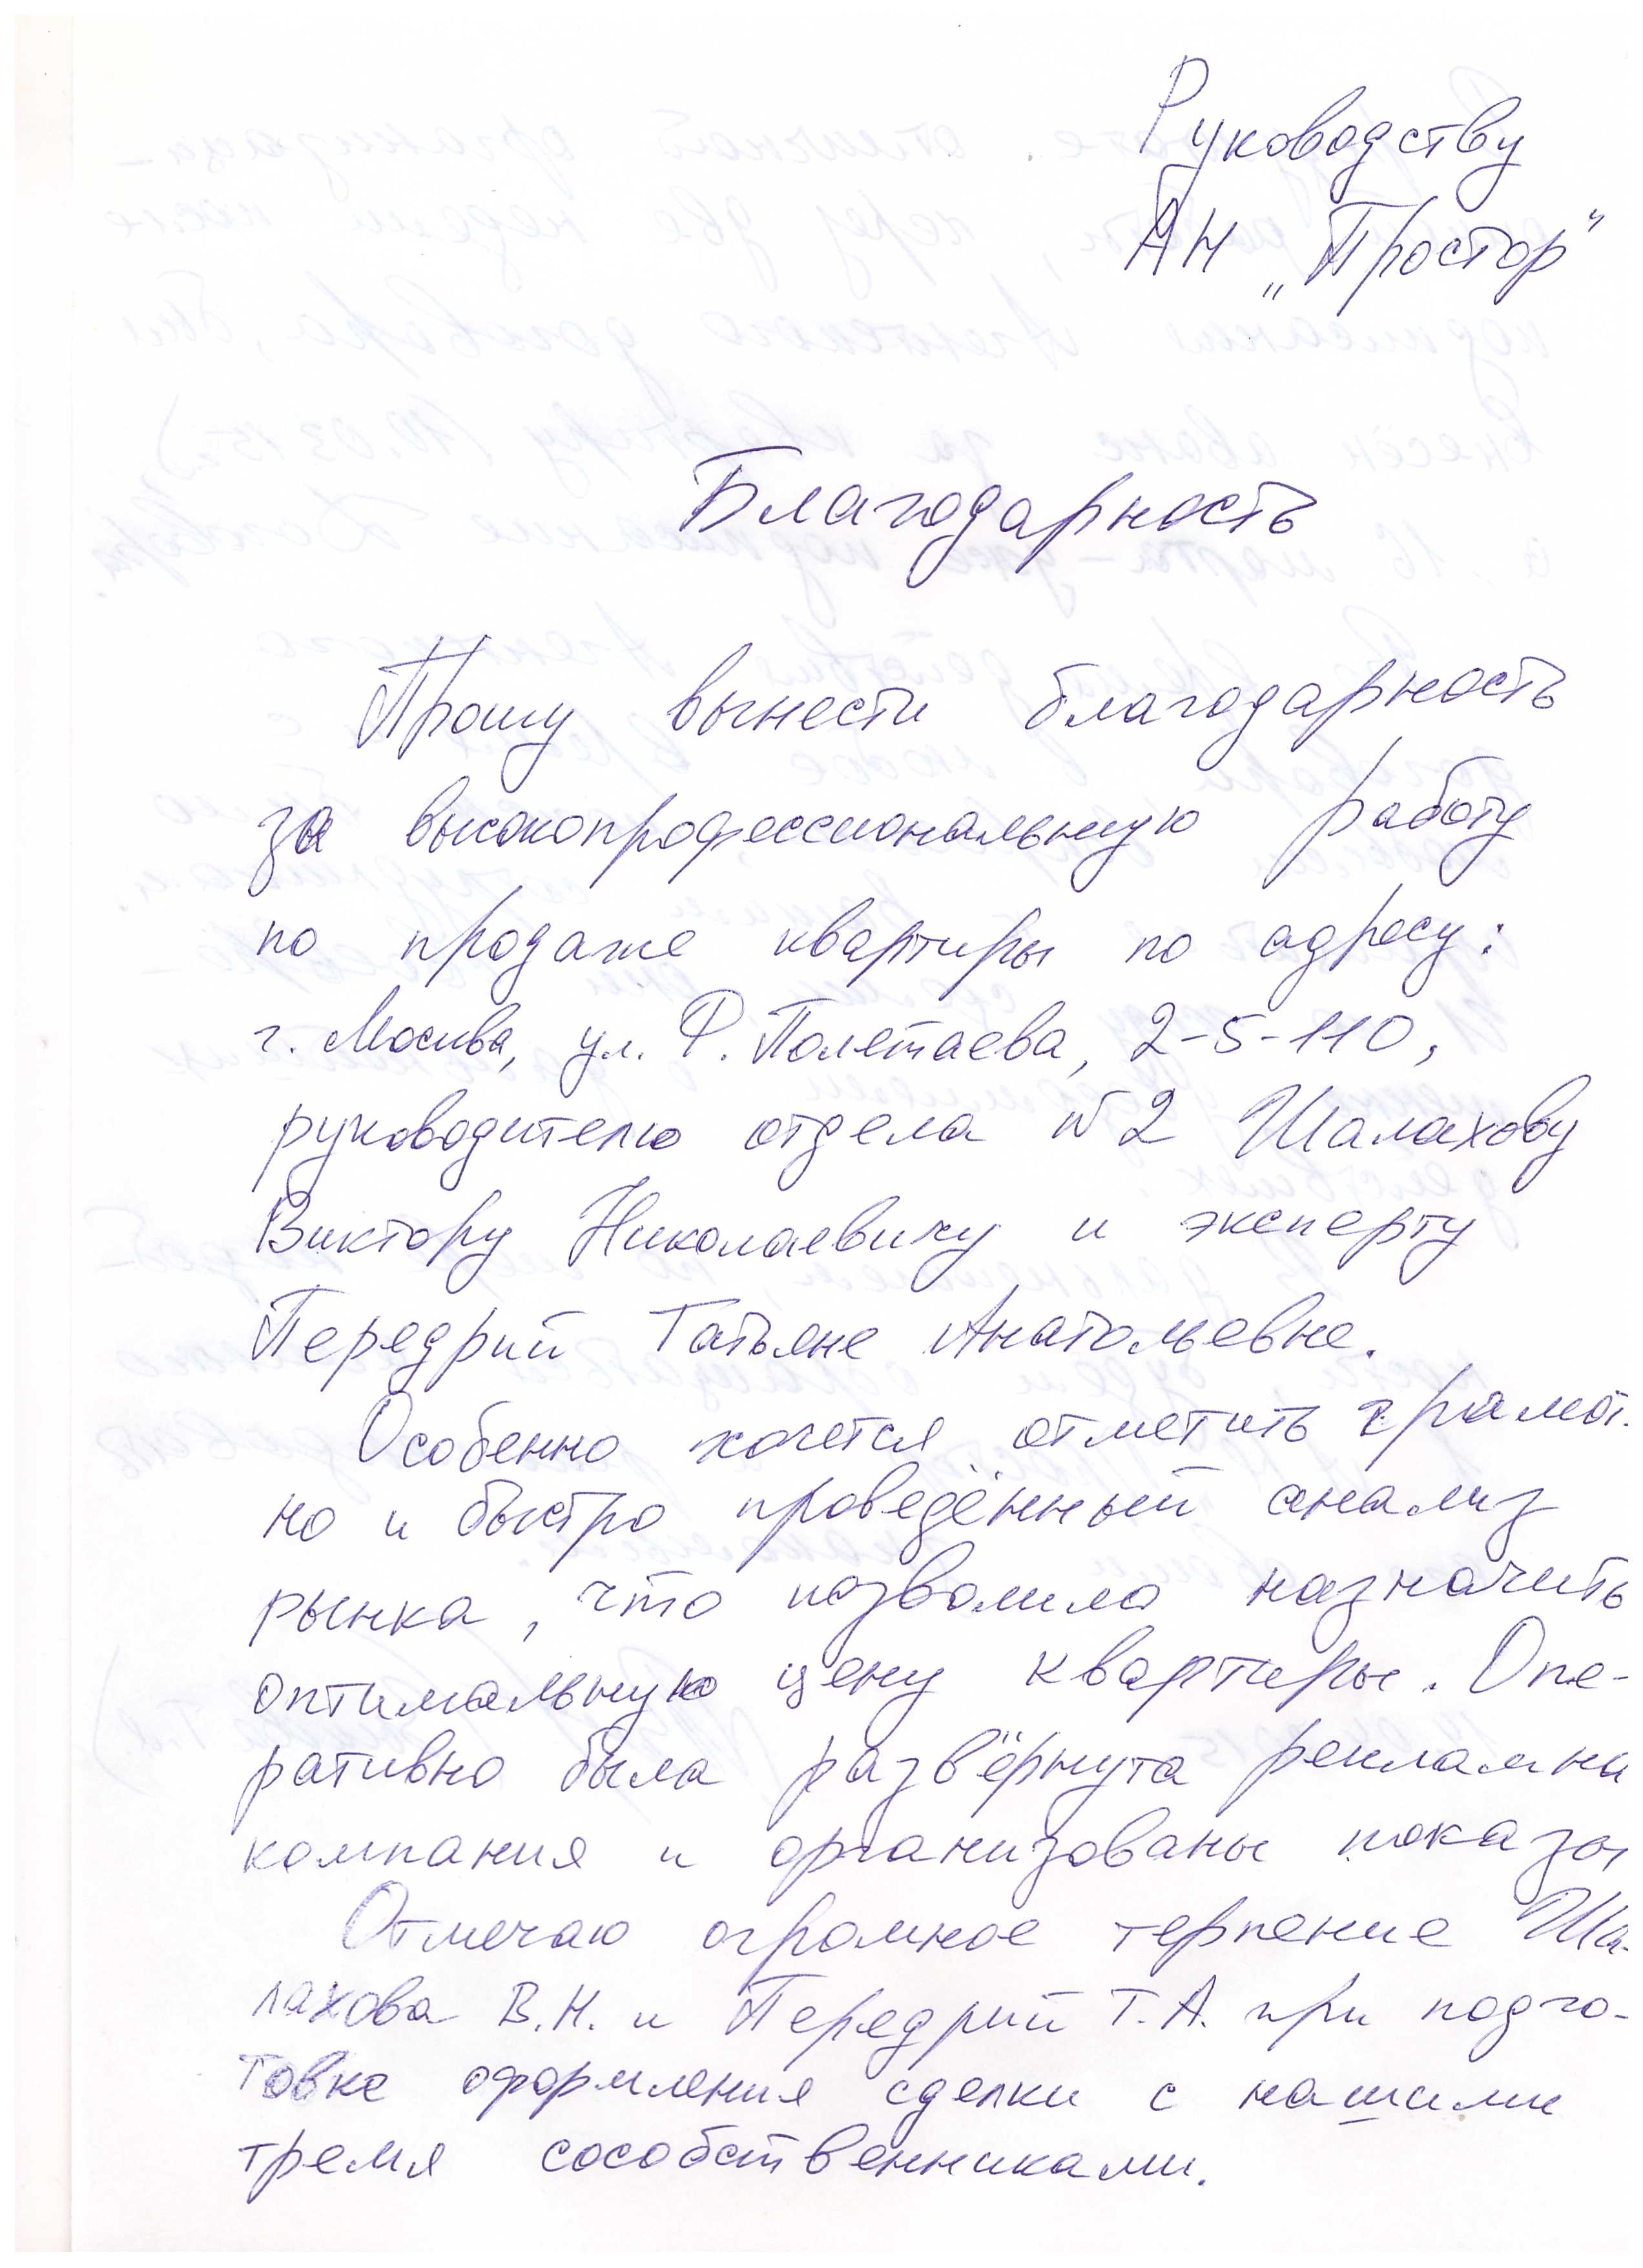 Руководству
АН „Простор"
Благодарность
Прошу вынести благодарность
за высокопрофессиональную работу
по продаже квартиры по адресу:
г. Москва, ул. Ф. Полетаева, 2-5-110,
руководителю отдела №2 Шалахову
Виктору Николаевичу и эксперту
Передрий Татьяне Анатольевне.
Особенно хочется отметить грамот-
но и быстро проведённый анализ
рынка, что позволило назначить
оптимальную цену квартиры. Опе-
ративно была развёрнута рекламна
компания и организованы показы
Отмечаю огромное терпение Ша-
лахова В.Н. и Передрий Т.А. при подго-
товке оформления сделки с нашими
тремя сособственниками.